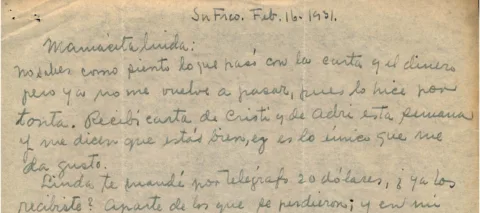 Sn Frco. Feb. 16-1931.
Mamacita linda:
no sabes como siento lo que pasó con la carta y el dinero
pero ya no me vuelve a pasar, pues lo hice por
tonta. Recibí carta de Cristi y de Adri esta semana
y me dicen que estás bien, es lo único que me
da gusto.
Linda te mandé por telégrafo 20 dólares, ¿ya los
recibiste? Aparte de los que se perdieron; y en mi